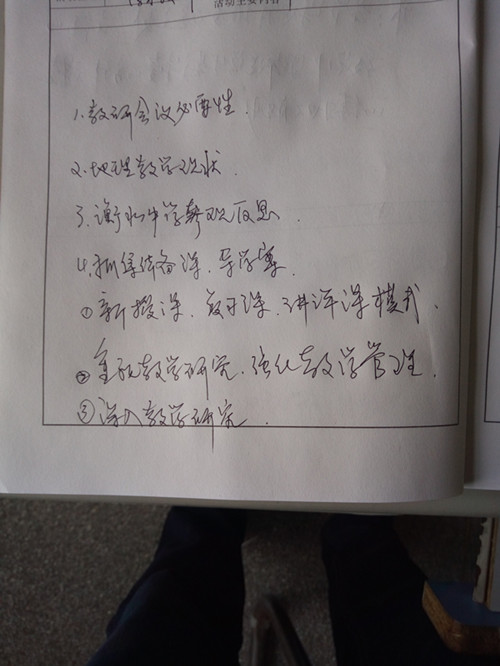 活动主要内容
1.教研会议必要性.
2.地理教学现状.
3.衡水中学 观反思.
4.抓集体备课、导学案.
①新授课、复习课、讲评课模式.
②重视教学研究、强化教学管理.
③深入教学研究.